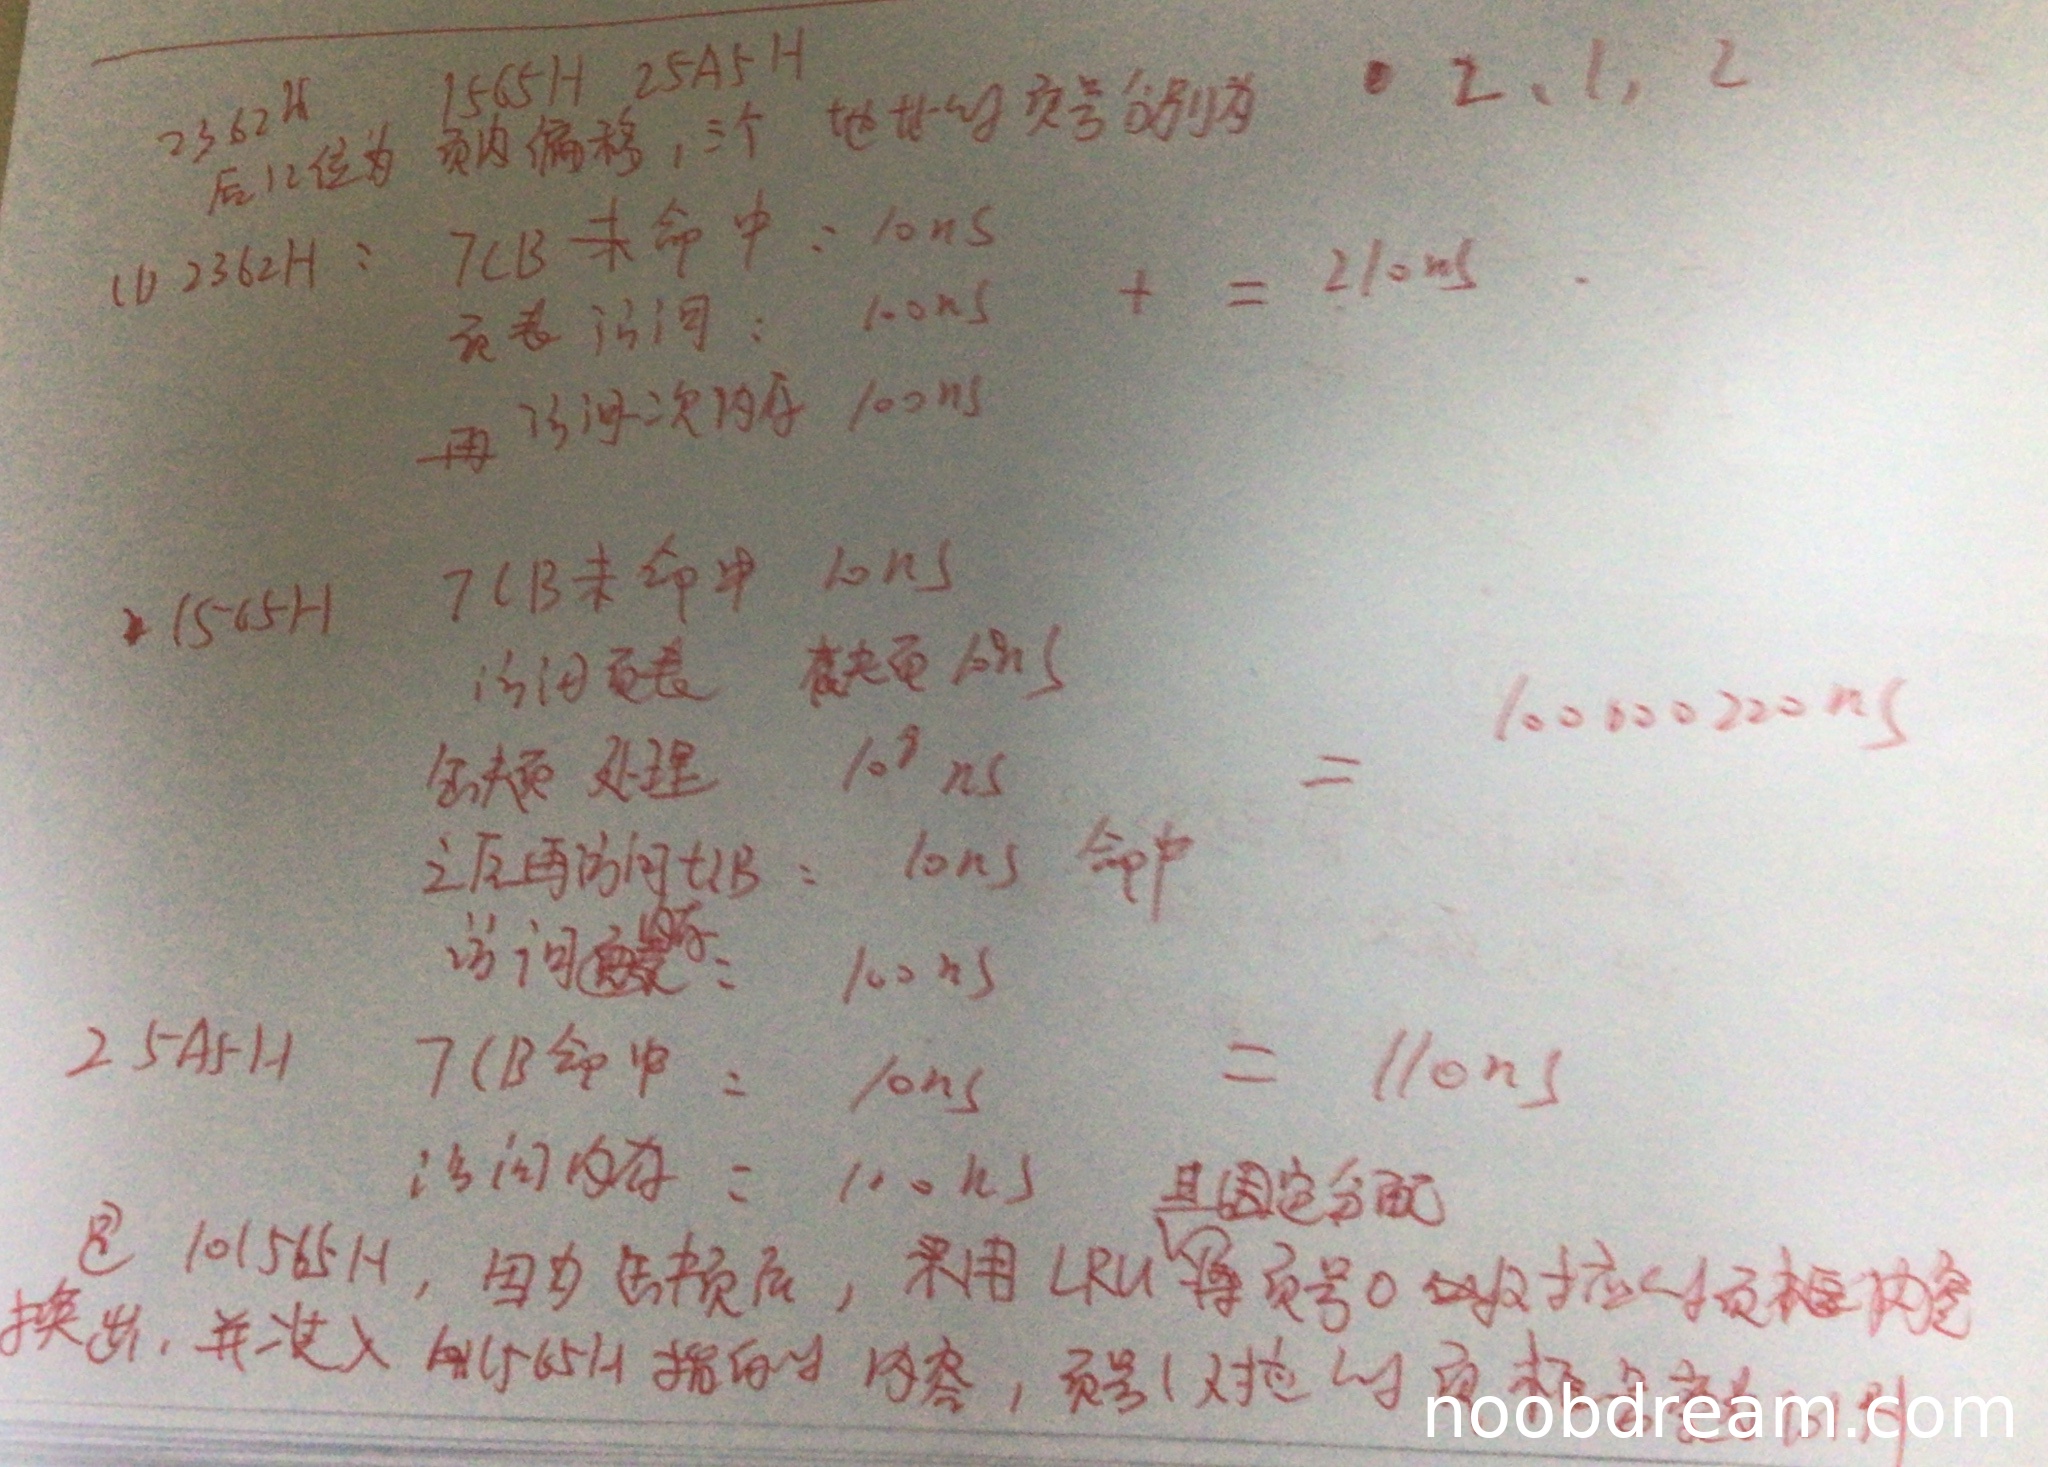 2362H 1565H 25A5H
后12位为页内偏移,三个 地址的页号分别为 2、1,2
(1) 2362H: TLB未命中: 10ns
页表访问: 100ns + = 210ns
再访问一次内存 100ns
1565H TLB未命中 10ns
访问页表 缺页
缺页处理 ns = 100000220ns
之后再访问tLB: 10ns 命中
访问内存: 100ns
25A5H TLB命中: 10ns = 110ns
访问内存: 100ns
且固定分配
② 101565H, 因为缺页后, 采用LRU 将页号0 对应的页框内容
换出, 并装入 1565H指向的内容, 页号1对应的页框
noobdream.com